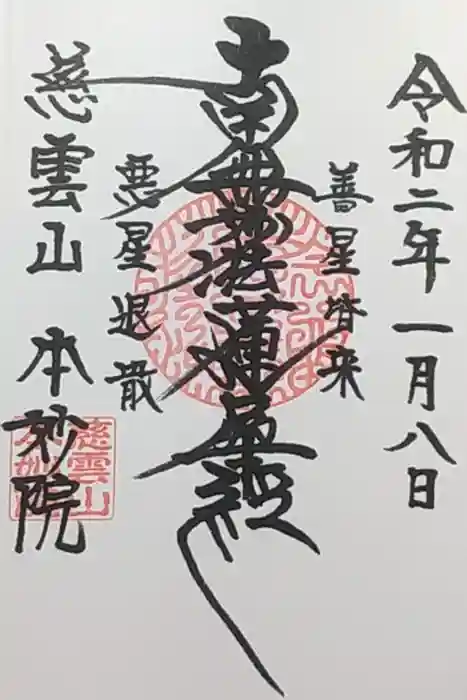 令和二年一月八日
善星皆来
南無妙法蓮華経
悪星退散
慈雲山 本妙院
慈雲山